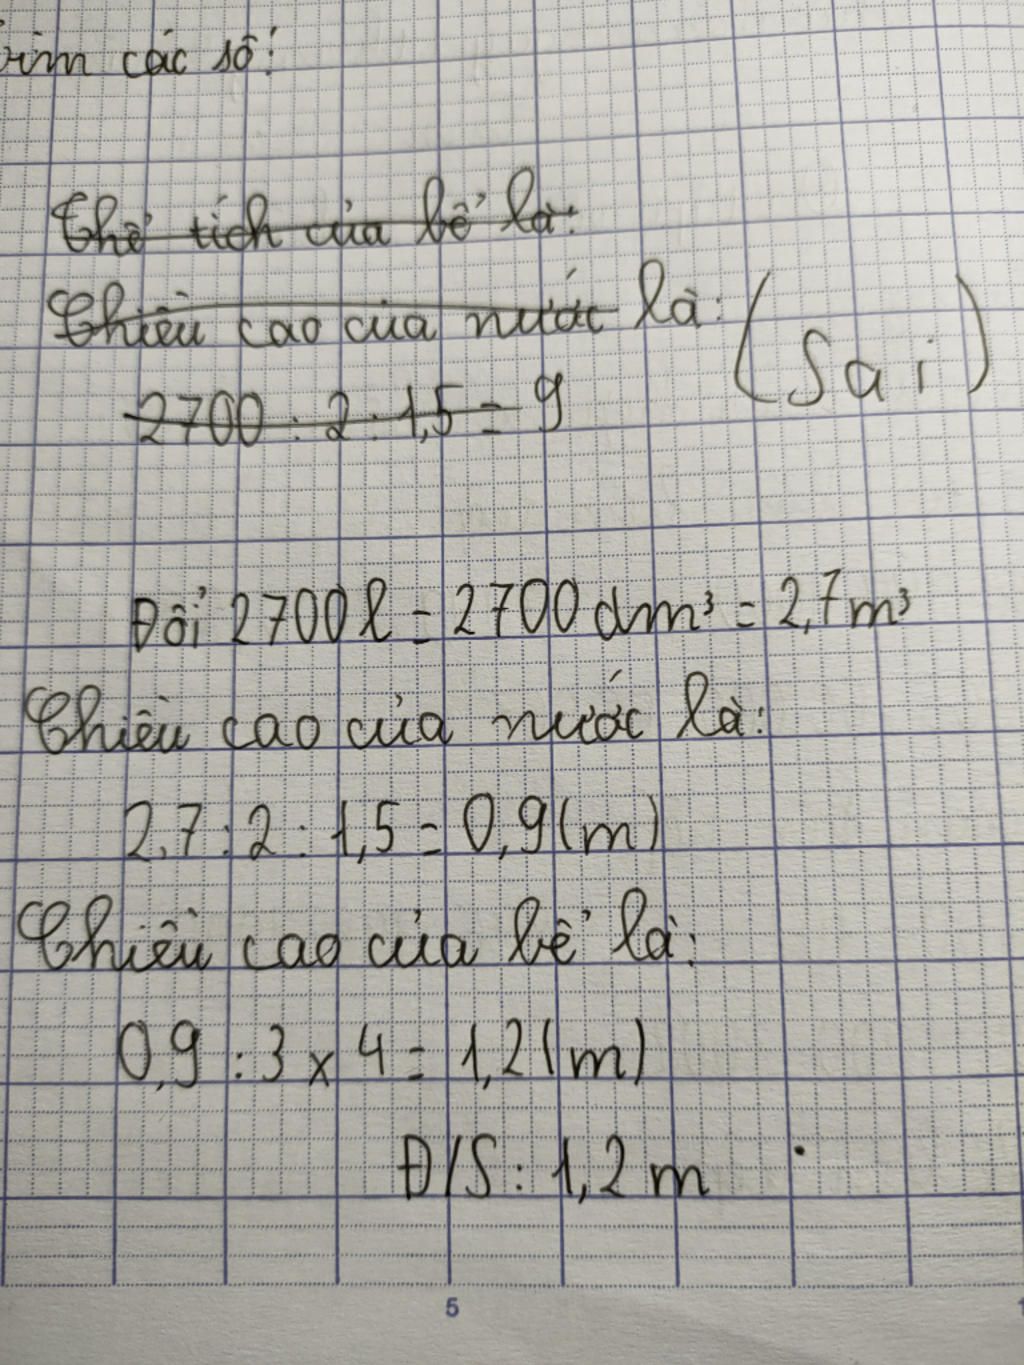 tìm các số:
Thể tích của bể là:
Chiều cao của nước là:
(Sai)
2700 : 2 : 1,5 = 9
Đổi 2700l = 2700dm³ = 2,7m³
Chiều cao của nước là:
2,7 : 2 : 1,5 = 0,9(m)
Chiều cao của bể là:
0,9 : 3 x 4 = 1,2(m)
Đ/S : 1,2m
5